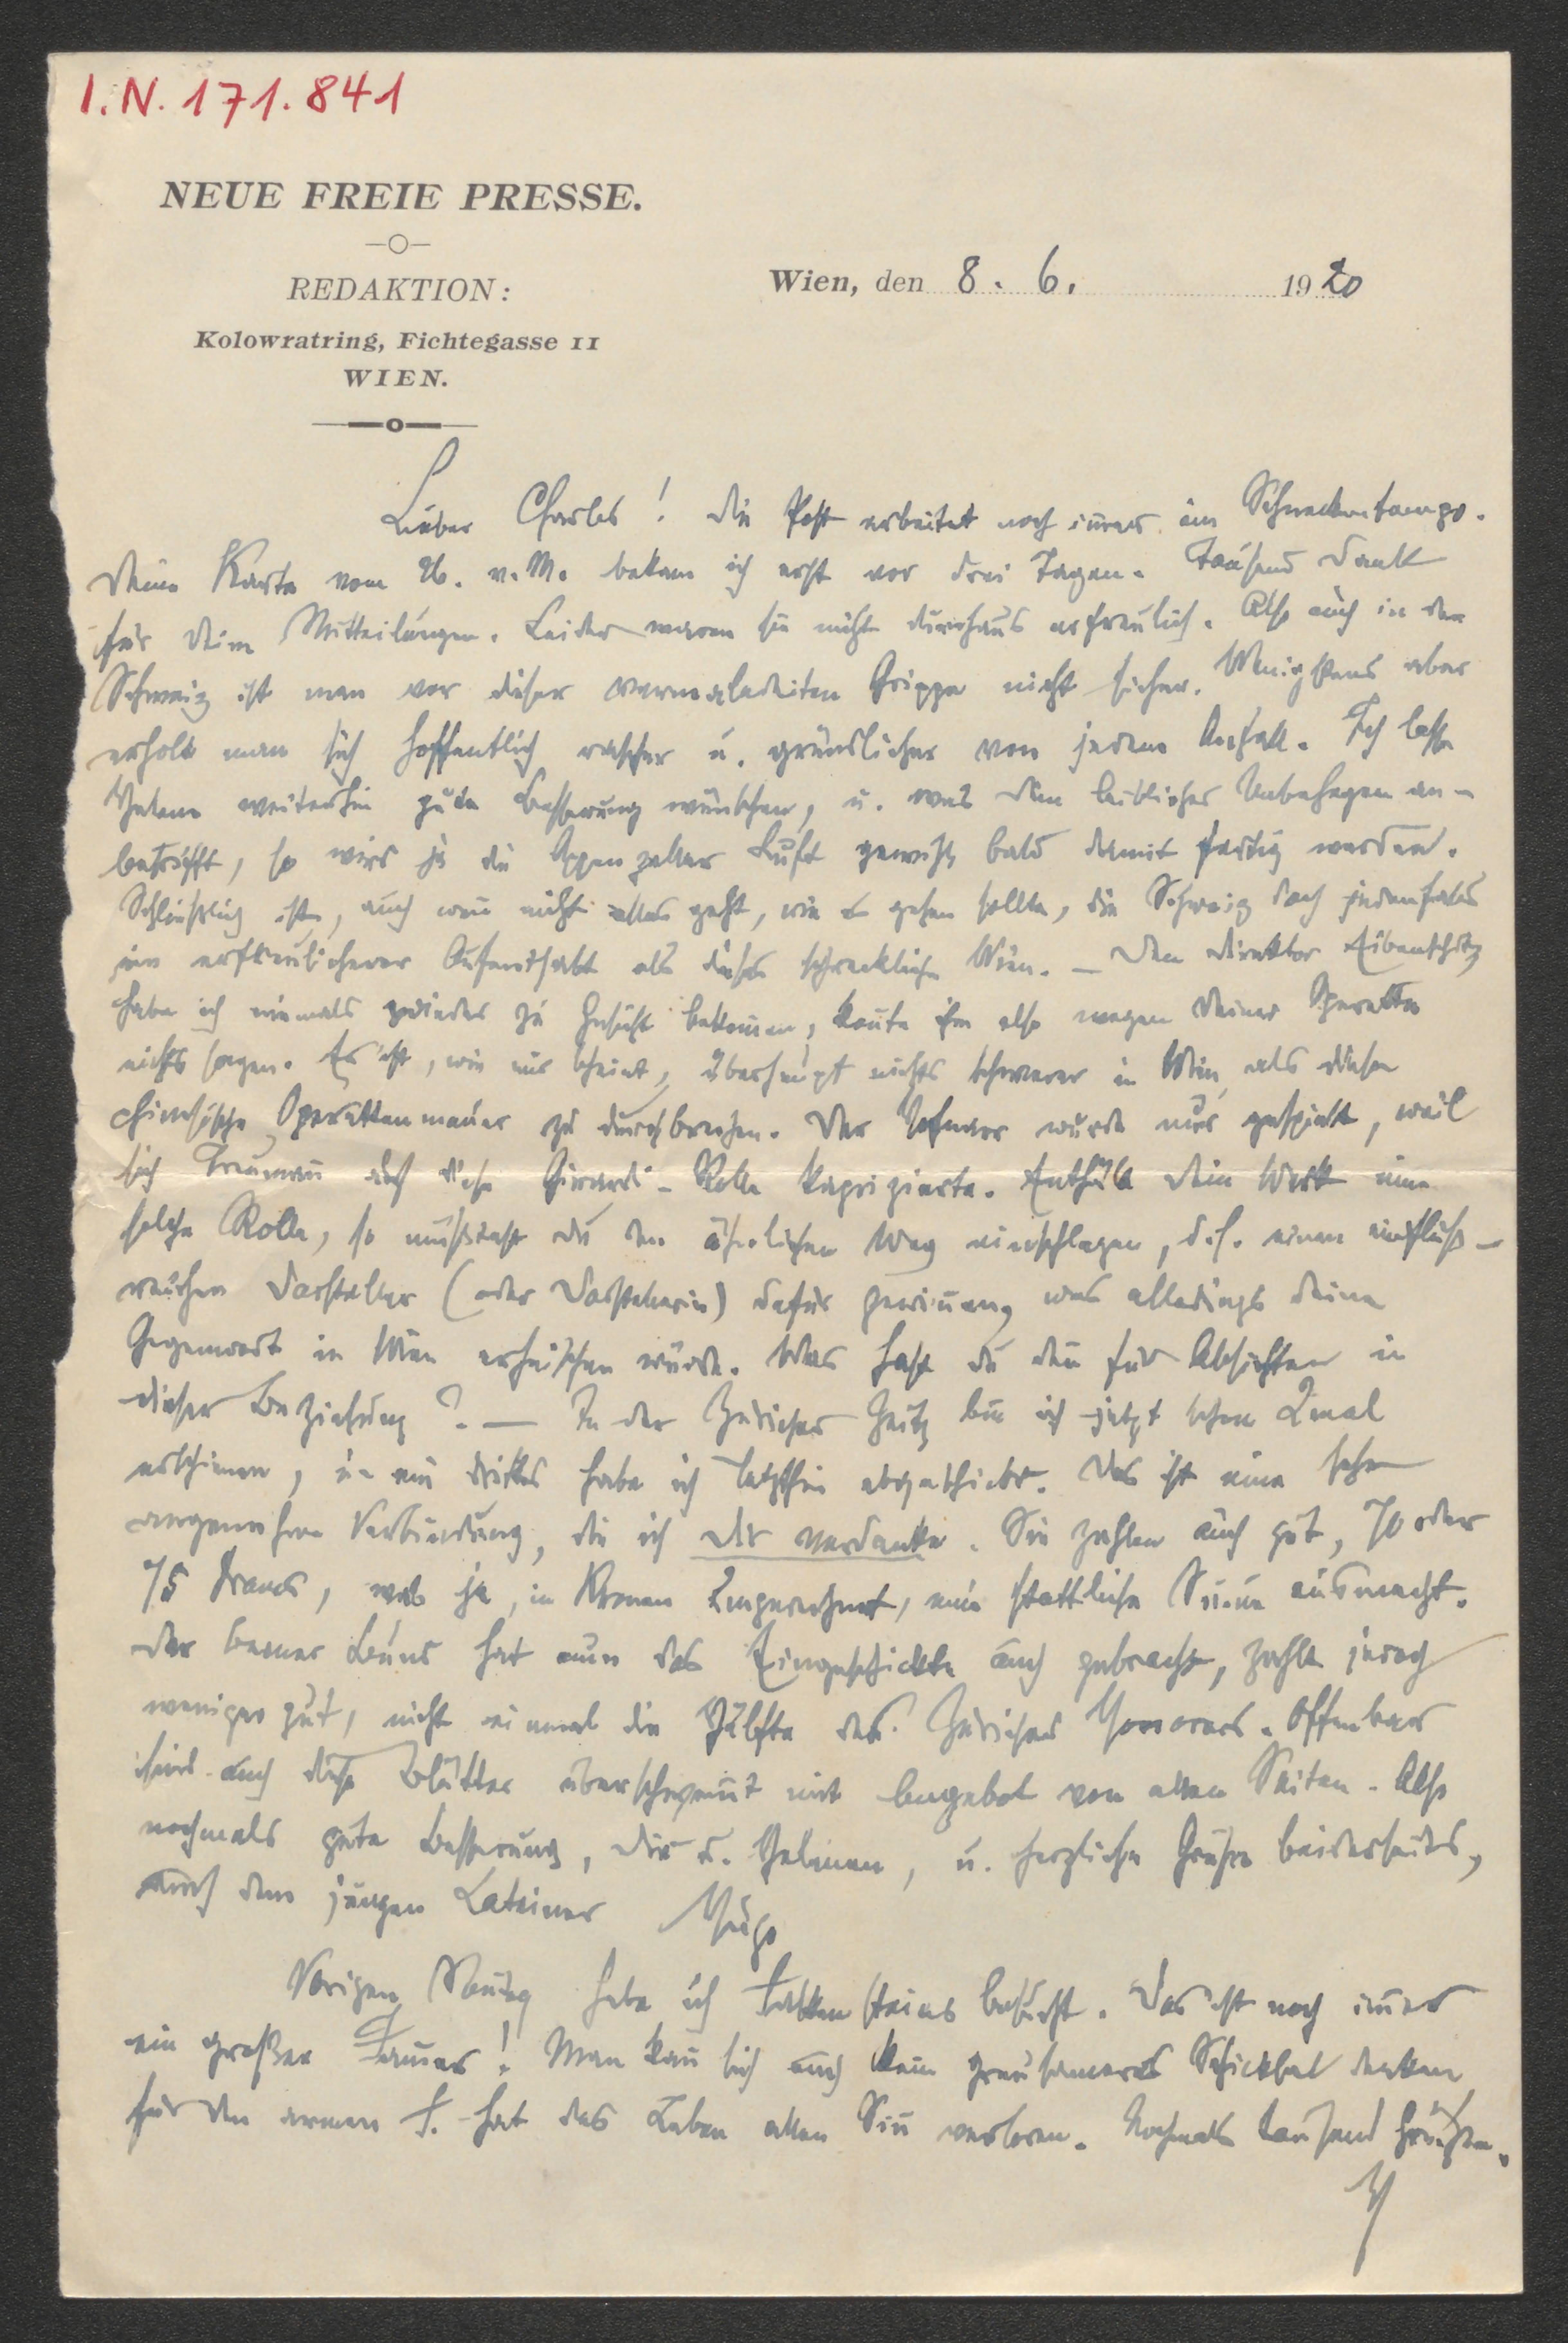 I.N. 171.841
NEUE FREIE PRESSE.
REDAKTION:
Kolowratring, Fichtegasse 11
WIEN.
Wien, den 8. 6. 1920
Lieber Charles! Die Post arbeitet noch im̅er im Schneckentempo.
Deine Karte vom 26. v. M. bekam ich erst vor drei Tagen. Tausend Dank
für Deine Mitteilungen. Leider waren sie nicht durchaus erfreulich. Also auch in der
Schweiz ist man vor dieser vermaledeiten Grippe nicht sicher. Wenigstens aber
erholt man sich hoffentlich rascher u. gründlicher von jedem Anfall. Ich lasse
Helene weiterhin gute Besserung wünschen, u. was Dein leibliches Unbehagen an-
betrifft, so wird ja die Appenzeller Luft gewiß bald damit fertig werden.
Schließlich ist, auch wen̅ nicht alles geht, wie es gehen sollte, die Schweiz doch jedenfalls
ein erfreulicherer Aufenthalt als dieses schreckliche Wien. – Den Direktor Eibenschütz
habe ich niemals wieder zu Gesicht bekom̅en, kon̅te ihm also wegen Deiner Operette
nichts sagen. Es ist, wie mir scheint, überhaupt nichts schwerer in Wien als diese
chinesische Operettenmauer zu durchbrechen. Der wurde nur gespielt, weil
sich auf diese Girardi-Rolle kaprizierte. Enthält Dein Werk eine
solche Rolle, so müßtest Du den ähnlichen Weg einschlagen, d. h. einen einfluß-
reichen Darsteller (oder Darstellerin) dafür gewin̅en, was allerdings Deine
Gegenwart in Wien erheischen würde. Was hast Du den̅ für Absichten in
dieser Beziehung? – In der Züricher Zeitg bin ich jetzt schon 2mal
erschienen, u. ein drittes habe ich letzthin abgeschickt. Das ist eine sehr
angenehme Verbindung, die ich Dir verdanke. Sie zahlen auch gut, 70 oder
75 Francs, was ja, in Kronen umgerechnet, eine stattliche Sum̅e ausmacht.
Der Berner Bund hat nun das Eingeschickte auch gebracht, zahlt jedoch
weniger gut, nicht einmal die Hälfte des Züricher Honorars. Offenbar
sind auch diese Blätter überschwem̅t mit Angebot von allen Seiten. Also
nochmals gute Besserung, Dir u. Helenen, u. herzliche Grüße beiderseits,
auch dem jungen Lateiner Hugo
Vorigen Son̅tag habe ich besucht. Das ist noch im̅er
ein großer Jam̅er! Man kan̅ sich auch kein grausameres Schicksal denken
für den armen F. hat das Leben allen Sin̅ verloren. Nochmals tausend Grüße.
H